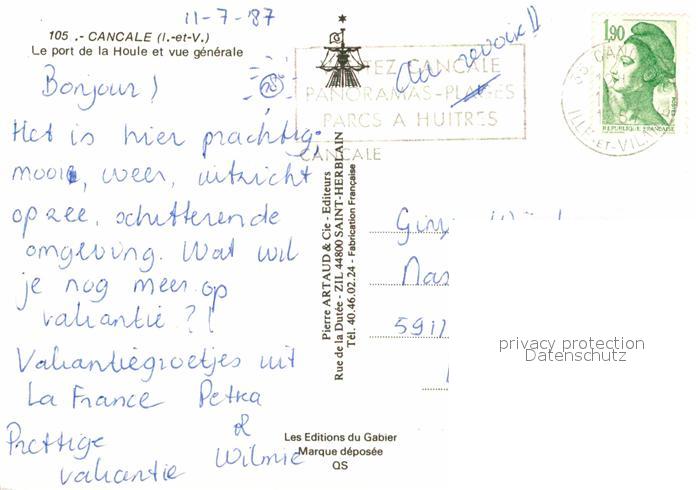 11-7-'87
105 .- CANCALE (I.-et-V.)
Le port de la Houle et vue générale
Bonjour!
Het is hier prachtig,
mooi, weer, uitzicht
op zee, schitterende
omgeving. Wat wil
je nog meer op
vakantie ?!
Vakantiegroetjes uit
La France Petra
&
Wilmie
Prettige
vakantie
Au revoir!!
CANCALE
PANORAMAS-PLAGES
PARCS A HUITRES
CANCALE
1,90
REPUBLIQUE FRANÇAISE
35
ILLE-ET-VIL
Pierre ARTAUD & Cie - Editeurs
Rue de la Dutée - ZIL 44800 SAINT-HERBLAIN
Tél. 40.46.02.24 - Fabrication Française
591
privacy protection
Datenschutz
Les Editions du Gabier
Marque déposée
QS